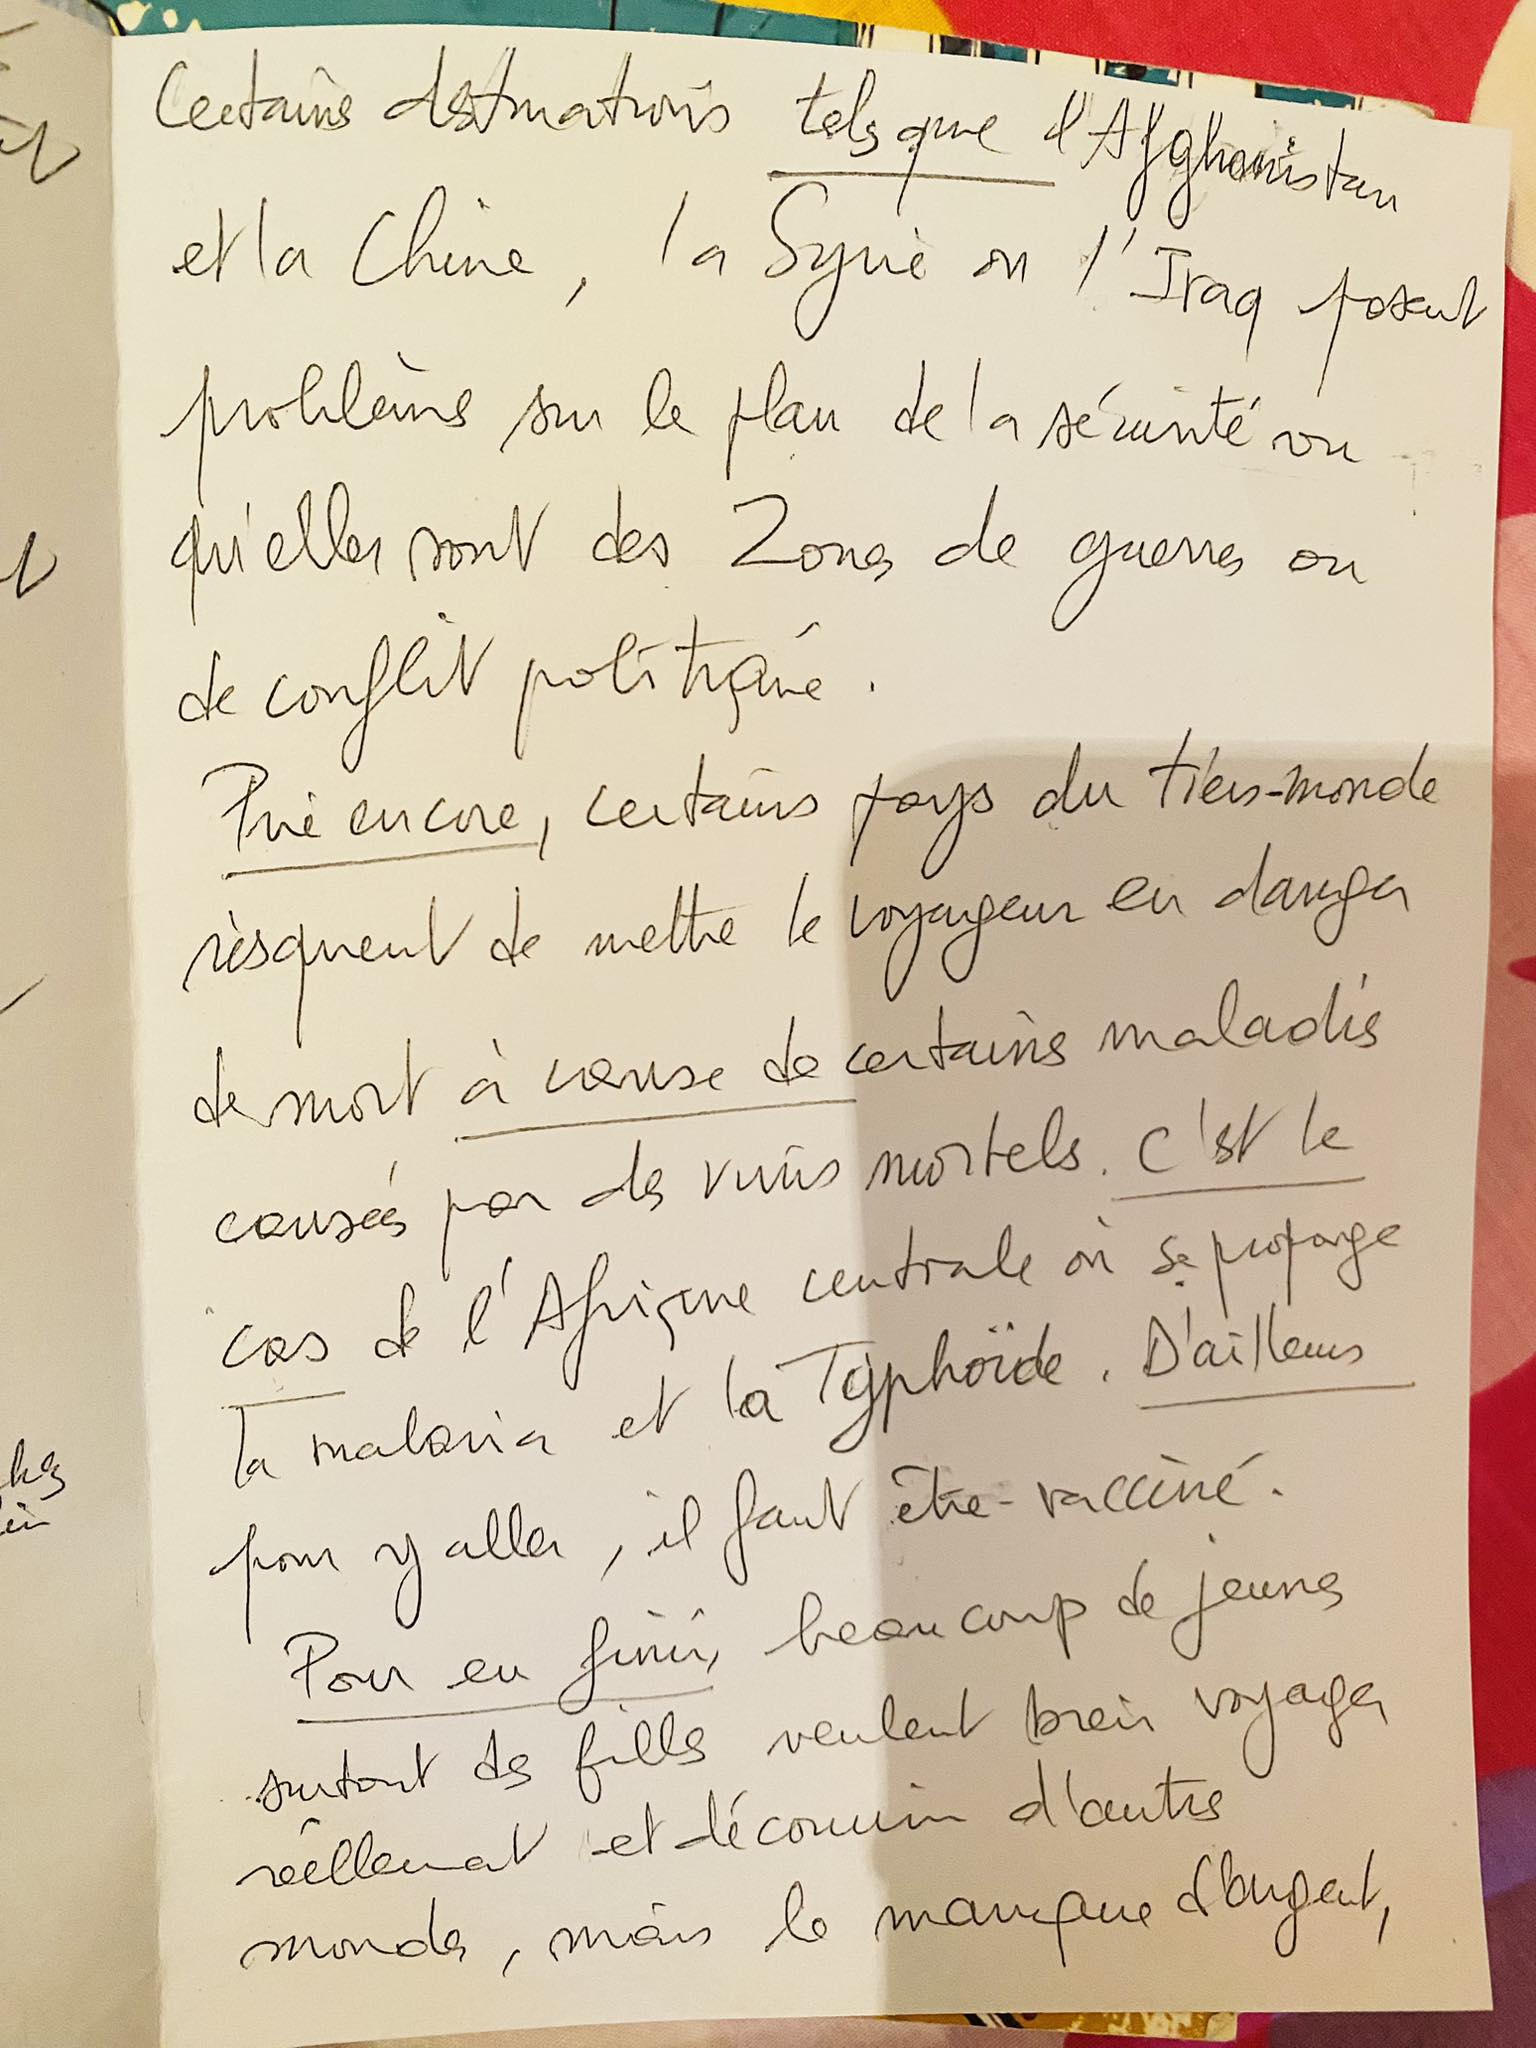 Certains destinations tels que l'Afghanistan
et la Chine, la Syrie ou l'Iraq posent
problèms sur le plan de la sécurité vu
qu'elles sont des Zones de guerres ou
de conflit politique.
Pire encore, certains pays du tiers-monde
risquent de mettre le voyageur en danger
de mort à cause de certains maladies
causées par des virus mortels. C'est le
cas de l'Afrique centrale où se propage
la malaria et la Typhoïde. D'ailleurs
pour y aller, il faut être vacciné.
Pour en finir, beaucoup de jeunes
surtout des filles veulent bien voyager
réellement et découvrir d'autres
mondes, mais le manque d'argent,